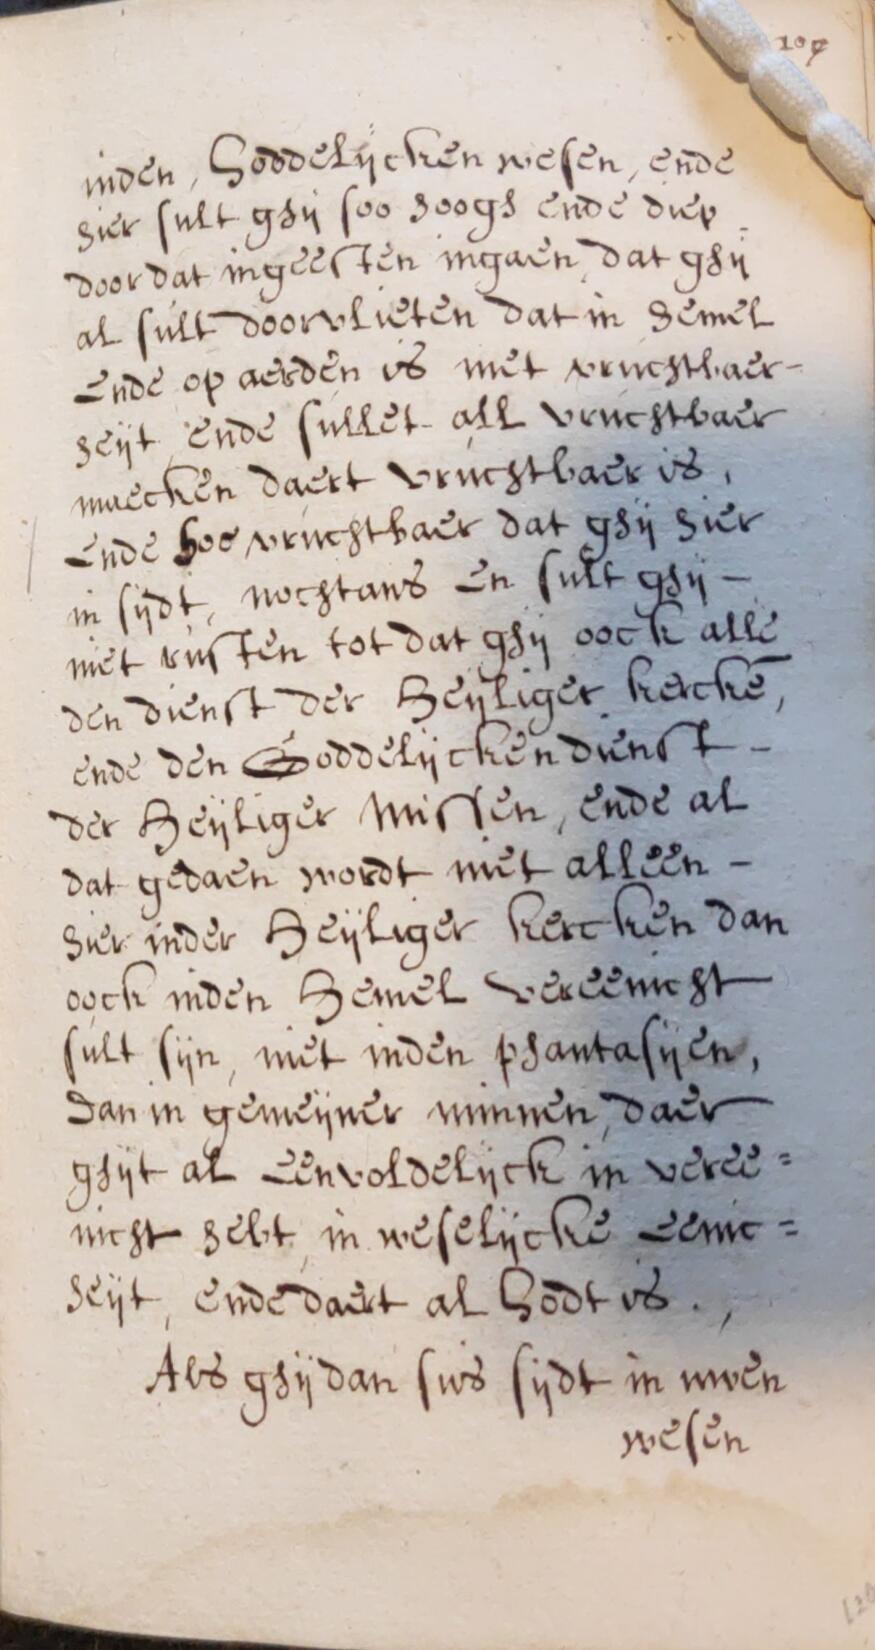 107
inden, Goddelijcken wesen, ende
hier sult ghij soo hooghs ende diep
door dat ingeesten ingaen, dat ghij
al sult doorvlieten dat in hemel
Ende op aerden is met vruchtbaer-
heijt, ende sullet all vruchtbaer
maecken daert vruchtbaer is,
Ende hoe vruchtbaer dat ghij hier
in sijdt, nochtans En sult ghij -
niet rusten tot dat ghij oock alle
den dienst der Heijliger kerckē,
ende den Goddelijcken dienst -
der Heijliger Missen, ende al
dat gedaen wordt niet alleen -
hier inder Heijliger kercken dan
oock inden Hemel vereenicht
sult sijn, niet inden phantasijen,
Dan in gemeijner minnen, daer
ghijt al Eenvoldelijck in veree=
nicht hebt, in weselijcke Eenic=
heijt, ende daert al Godt is.,
Als ghij dan sus sijdt in uwen
wesen